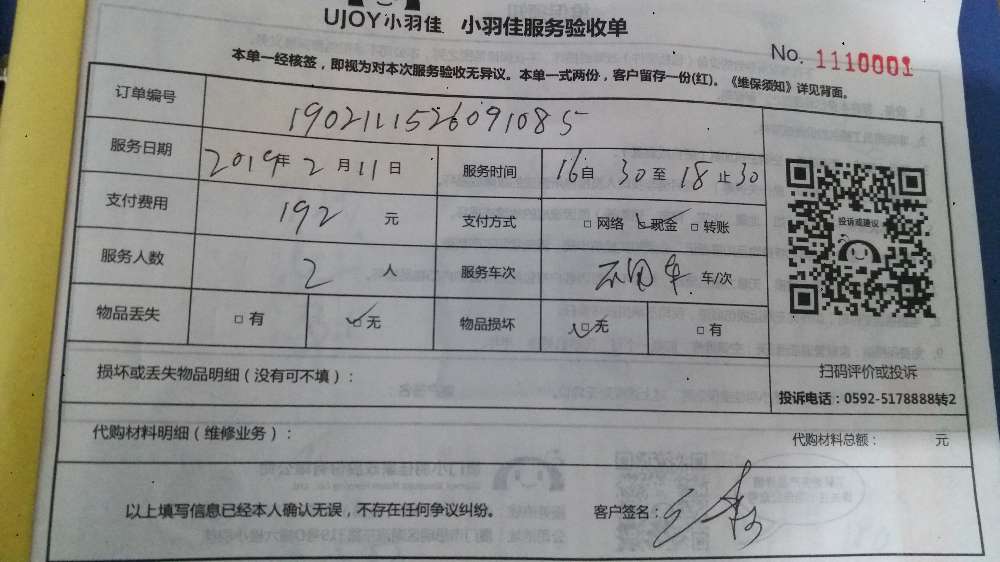 UJOY小羽佳 小羽佳服务验收单
No. 1110001
本单一经核签，即视为对本次服务验收无异议。本单一式两份，客户留存一份(红)。《维保须知》详见背面。
订单编号 1902111526091085
服务日期 2019年2月11日 服务时间 16自30至18止30
支付费用 192 元 支付方式 □网络 ☑现金 □转账
服务人数 2 人 服务车次 不用车 车/次
物品丢失 □有 ☑无 物品损坏 ☑无 □有
投诉或建议
扫码评价或投诉
投诉电话：0592-5178888转2
损坏或丢失物品明细（没有可不填）：
代购材料明细（维修业务）： 代购材料总额： 元
以上填写信息已经本人确认无误，不存在任何争议纠纷。 客户签名：